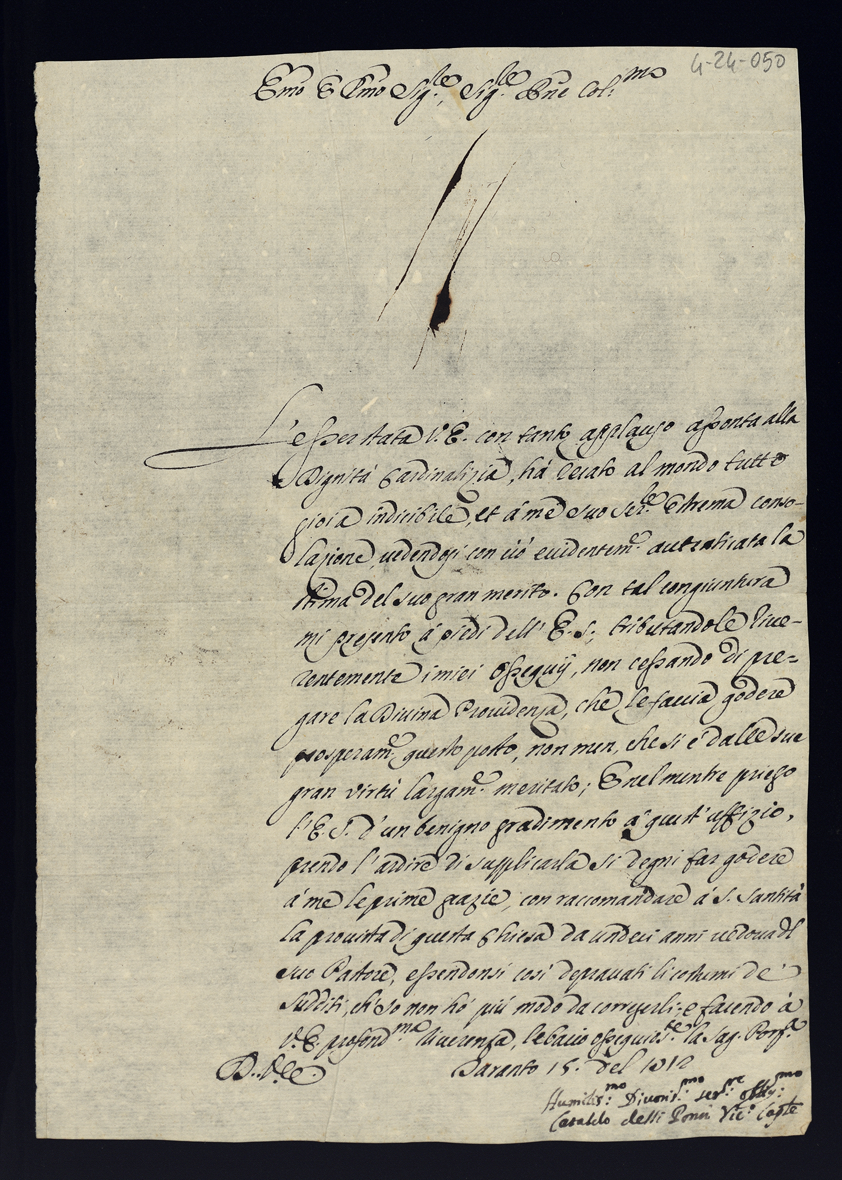 4-24-050
Emo e Rmo Sig.re, Sig.re Prne Col:mo
L'essersi stata V.E. con tanto applauso assonta alla
Dignità Cardinalizia, hà recato al mondo tutto
gioia indicibile, et à me suo Ser.re estrema conso-
lazione, vedendosi con ciò evidentem.e autenticata la
stima del suo gran merito. Con tal congiuntura
mi presento à piedi dell'E.S., tributandole rive-
rentemente i miei ossequij, non cessando di pre-
gare la Divina Providenza, che le faccia godere
prosperam.e questo posto, non men, che si è dalle sue
gran virtù largam.e meritato; E nel mentre priego
l'E.S. d'un benigno gradimento à quest'uffizio,
prendo l'ardire di supplicarla si degni far godere
à me le prime grazie, con raccomandare à S. Santità
la provista di questa Chiesa da undeci anni vedova del
suo Pastore, essendonsi così depravati li costumi de'
sudditi, ch'io non hò più modo da correggerli; e facendo à
V.E. profond.ma riverenza, le bacio ossequios.te la Sag. Porp.a
D. V. E.
Taranto 15. del 1712
Humilis:mo Divotis:mo ser:re oblig:mo
Cataldo delli Ponti Vic.o Cap.le